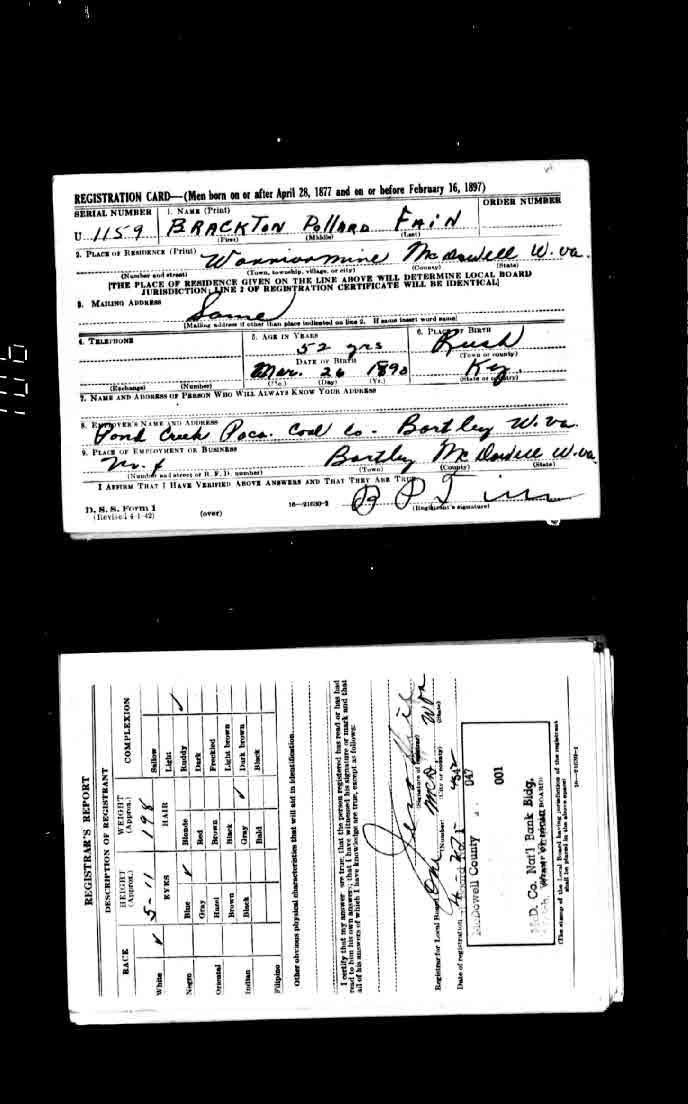 REGISTRATION CARD—(Men born on or after April 28, 1877 and on or before February 16, 1897)
SERIAL NUMBER 1. NAME (Print) ORDER NUMBER
U 1159 BRACKTON POLLARD FAIN
(First) (Middle) (Last)
2. PLACE OF RESIDENCE (Print)
Warriormine McDowell W. va.
(Number and street) (Town, township, village, or city) (County) (State)
[THE PLACE OF RESIDENCE GIVEN ON THE LINE ABOVE WILL DETERMINE LOCAL BOARD
JURISDICTION; LINE 2 OF REGISTRATION CERTIFICATE WILL BE IDENTICAL]
3. MAILING ADDRESS
Same
[Mailing address if other than place indicated on line 2. If same insert word same]
4. TELEPHONE 5. AGE IN YEARS 6. PLACE OF BIRTH
52 yrs Rush
DATE OF BIRTH (Town or county)
Mar. 26 1890 Ky.
(Exchange) (Number) (Mo.) (Day) (Yr.) (State or country)
7. NAME AND ADDRESS OF PERSON WHO WILL ALWAYS KNOW YOUR ADDRESS
8. EMPLOYER'S NAME AND ADDRESS
Pond Creek Poca. Coal Co. - Bartley W. va.
9. PLACE OF EMPLOYMENT OR BUSINESS
Bartley McDowell W. va.
(Number and street or R. F. D. number) (Town) (County) (State)
I AFFIRM THAT I HAVE VERIFIED ABOVE ANSWERS AND THAT THEY ARE TRUE.
D. S. S. Form 1
(Revised 4-1-42) (over) 16—21630-2 (Registrant's signature)
REGISTRAR'S REPORT
DESCRIPTION OF REGISTRANT
RACE HEIGHT (Approx.) WEIGHT (Approx.) COMPLEXION
White ✓ 5-11 198 Sallow
EYES HAIR Light
Negro Blue ✓ Blonde Ruddy ✓
Gray Red Dark
Oriental Hazel Brown Freckled
Brown Black Light brown
Indian Black Gray ✓ Dark brown
Bald Black
Filipino
Other obvious physical characteristics that will aid in identification
I certify that my answers are true; that the person registered has read or has had
read to him his own answers; that I have witnessed his signature or mark and that
all of his answers of which I have knowledge are true, except as follows:
(Signature of registrar)
Registrar for Local Board One McD W Va
(Number) (City or county) (State)
Date of registration
McDowell County 047
001
McD. Co. Nat'l Bank Bldg.
(The stamp of the Local Board having jurisdiction of the registrant
shall be placed in the above space)
16—21630-1